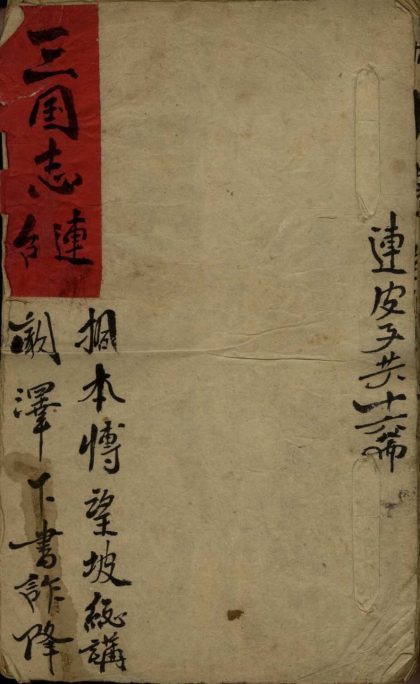 連皮子共十六篇
三国志
連台
本愽望坡総講
闞澤下書詐降